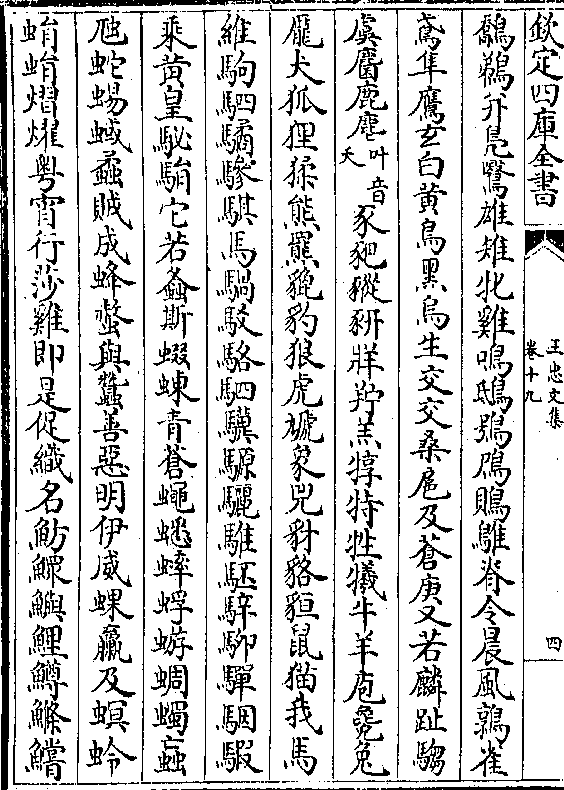 欽定四庫全書
王忠文集
卷十九
四
鷮鵜并鳧鷖雄雉牝雞鳴鴟鴞鴇鵙鵰脊令晨風鶉雀
鳶隼鷹玄白黃鳥黑烏生交交桑扈及蒼庚又若麟趾騶
虞麕鹿麀叶音夭豕豝豵豜牂羜羔犉特牲犧牛羊庖㲋兔
厖犬狐狸猱熊羆貔豹狼虎虒象兕豺貉貆鼠猫我馬
維駒駟驈驂騏馬騧駁駱駟驥騵驪騅駓騂駵驒駰騢
乘黃皇駜駽它若螽斯蝃蝀青蒼蠅蟋蟀蜉蝣蜩蠋蝱
虺蛇蜴蜮蟊賊成蜂螫與蠶善惡明伊威蜾蠃及螟蛉
蜎蜎熠燿粤宵行莎雞即是促織名魴鰥鱮鯉鱒鰷鱨